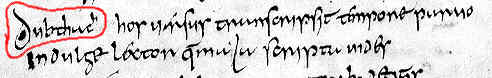 Dubthach hos uersus transcripsit tempore paruo
Indulge lector quae male scripta uides